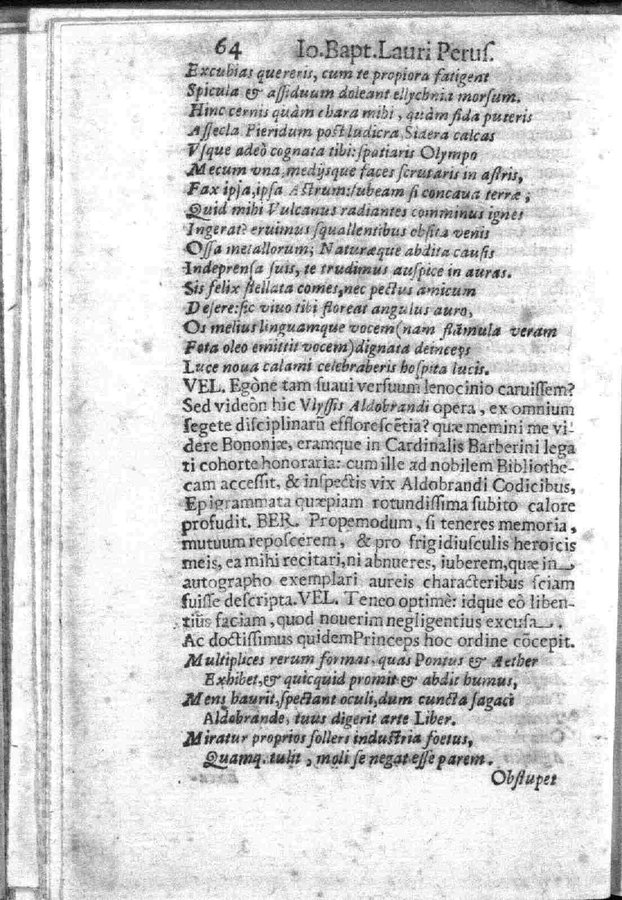 64 Io.Bapt.Lauri Perus.
Excubias quereris, cum te propiora fatigent
Spicula & assiduum doleant ellychnia morsum.
Hinc cernis quàm chara mihi, quàm fida puteris
Assecla Pieridum post ludicra, Sidera calcas
Vsque adeò cognata tibi: spatiaris Olympo
Mecum vna, medijsque faces scrutaris in astris,
Fax ipsa, ipsa Astrum: subeam si concaua terræ,
Quid mihi Vulcanus radiantes comminus ignes
Ingerat? eruimus squallentibus obsita venis
Ossa metallorum; Naturæque abdita causis
Indeprensa suis, te trudimus auspice in auras.
Sis felix stellata comes, nec pectus amicum
Desere: sic viuo tibi floreat angulus auro,
Os melius linguamque vocem (nam flãmula veram
Fota oleo emittit vocem) dignata deinceps
Luce noua calami celebraberis hospita lucis.
VEL. Egòne tam suaui versuum lenocinio caruissem?
Sed videòn hic Vlyssis Aldobrandi opera, ex omnium
segete disciplinarũ efflorescẽtia? quæ memini me vi-
dere Bononiæ, eramque in Cardinalis Barberini lega
ti cohorte honoraria: cum ille ad nobilem Bibliothe-
cam accessit, & inspectis vix Aldobrandi Codicibus,
Epigrammata quæpiam rotundissima subito calore
profudit. BER. Propemodum, si teneres memoria,
mutuum reposcerem, & pro frigidiusculis heroicis
meis, ea mihi recitari, ni abnueres, iuberem, quæ in
autographo exemplari aureis characteribus sciam
fuisse descripta. VEL. Teneo optimè: idque eò liben-
tiùs faciam, quod nouerim negligentius excusa.
Ac doctissimus quidem Princeps hoc ordine cõcepit.
Multiplices rerum formas, quas Pontus & Aether
Exhibet, & quicquid promit & abdit humus,
Mens haurit, spectant oculi, dum cuncta sagaci
Aldobrande, tuus digerit arte Liber.
Miratur proprios sollers industria foetus,
Quamq. tulit, moli se negat esse parem.
Obstupet